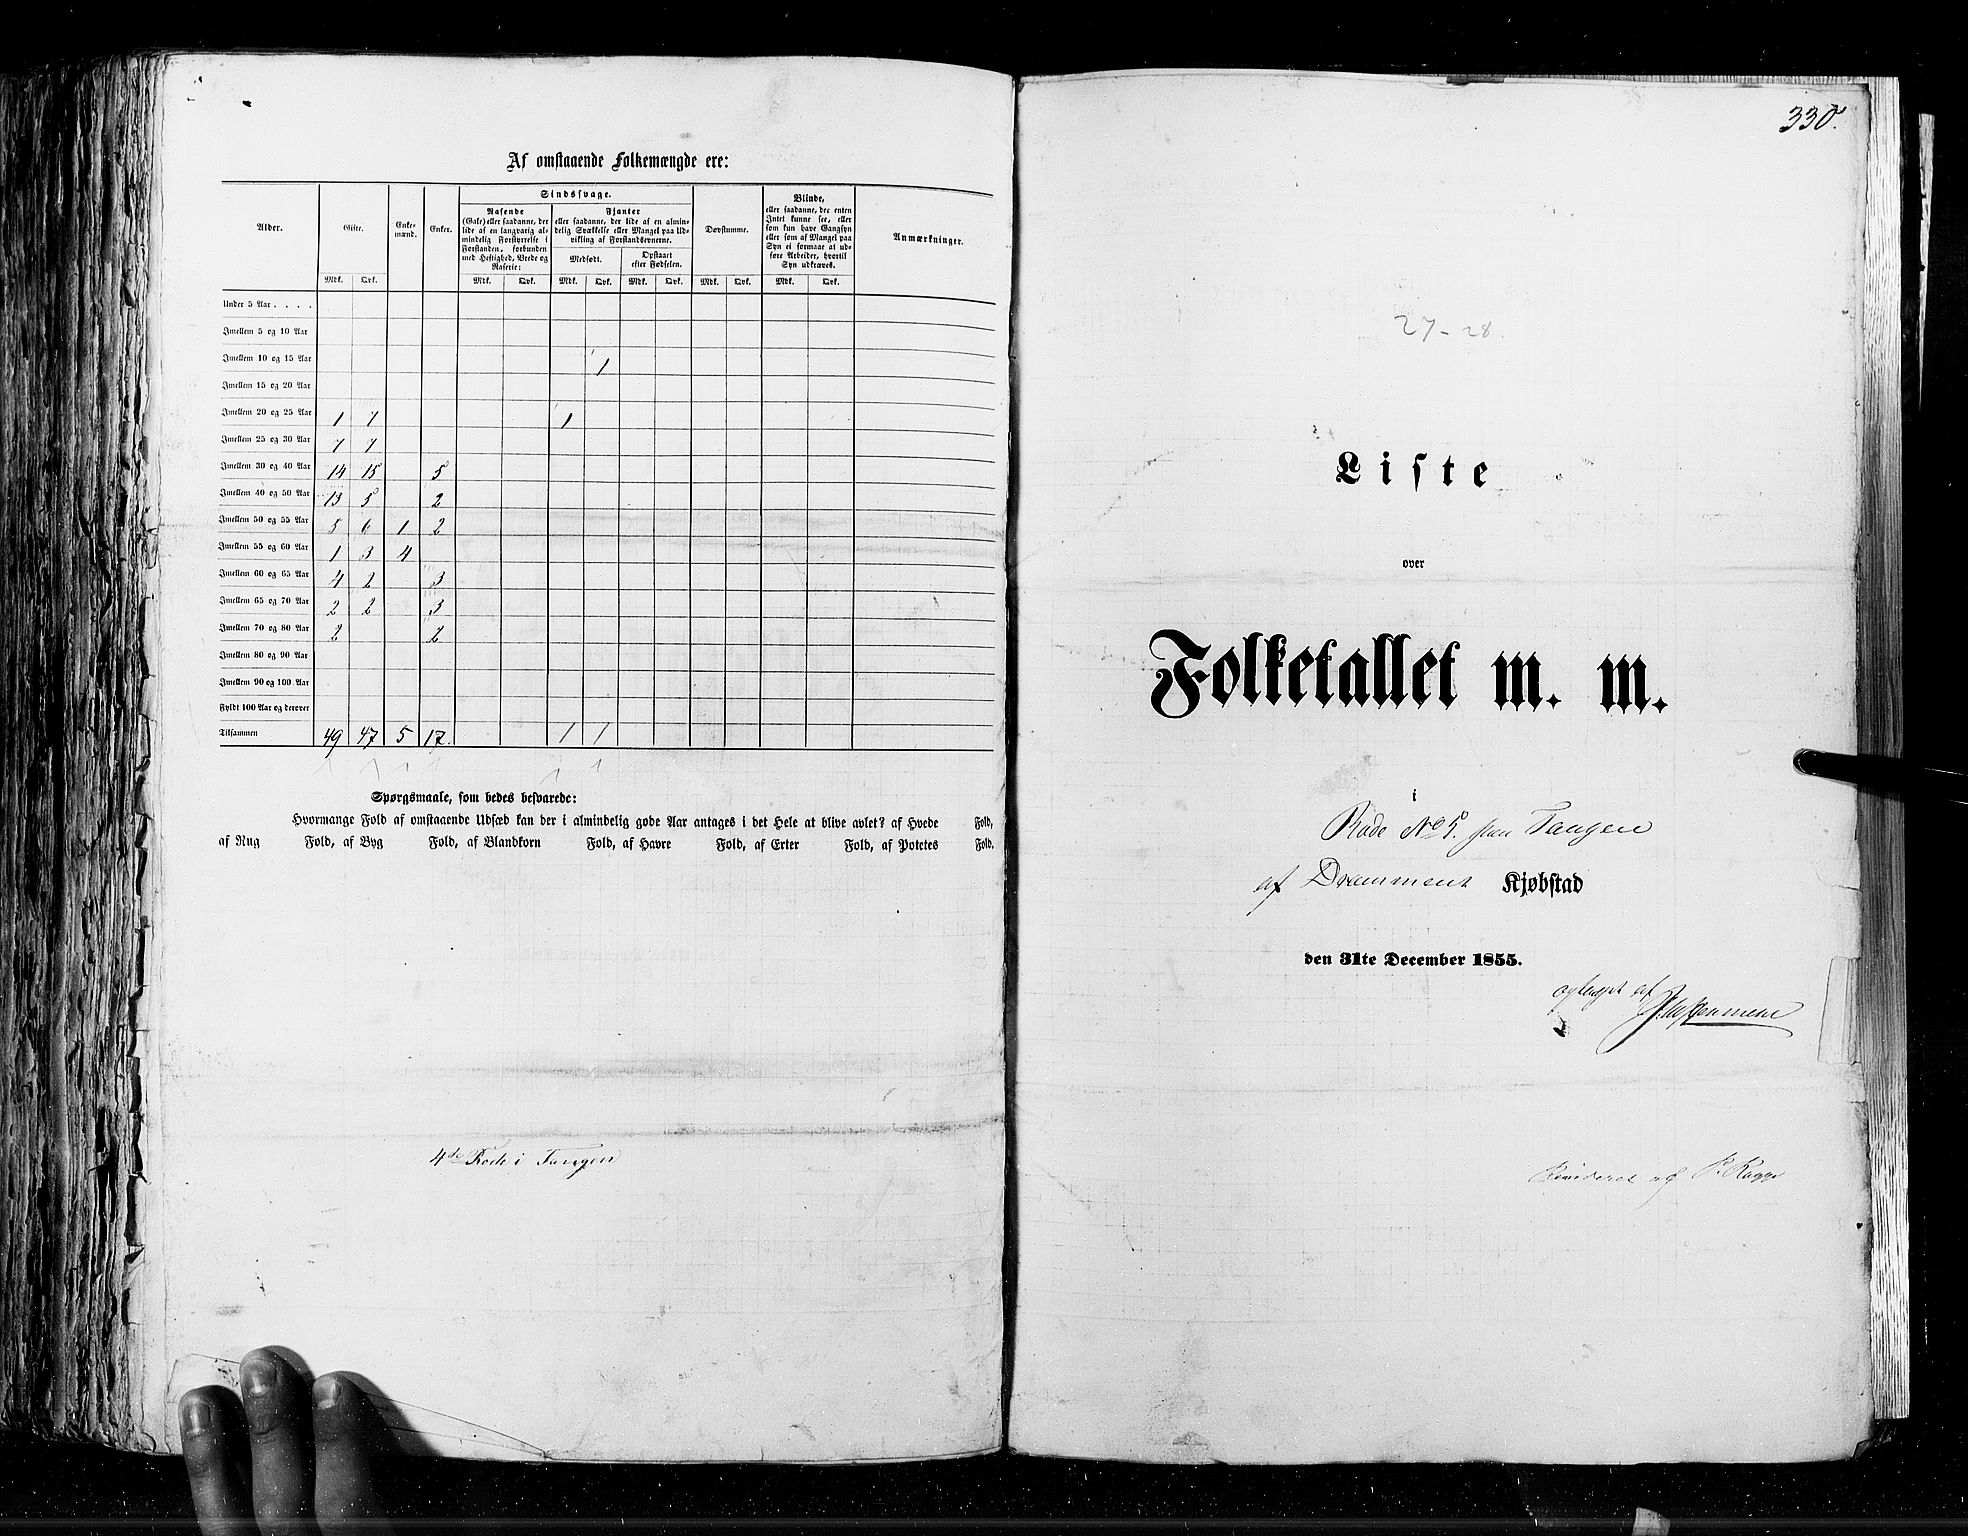 Af omstaaende Folkemængde ere:
Alder. Gifte. Enkemænd. Enker. Sindssvage. Døvstumme. Blinde, eller saadanne, der enten Intet kunne see, eller som kun have Gangsyn eller som af Mangel paa Syn ei formaae at udføre Arbeider, hvortil Syn udkræves. Anmærkninger.
Rasende (Gale) eller saadanne, der lide af en langvarig almindelig Forstyrrelse i Forstanden, forbunden med Heftighed, Vrede og Raserie:
Fjanter eller saadanne, der lide af en almindelig Svækkelse eller Mangel paa Udvikling af Forstandsevnerne.
Medfødt. Opstaaet efter Fødselen.
Mdk. Qvk. Mdk. Qvk. Mdk. Qvk. Mdk. Qvk. Mdk. Qvk. Mdk. Qvk.
Under 5 Aar . . . .
Imellem 5 og 10 Aar
Imellem 10 og 15 Aar 1
Imellem 15 og 20 Aar
Imellem 20 og 25 Aar 1 7 1
Imellem 25 og 30 Aar 7 7
Imellem 30 og 40 Aar 14 15 5
Imellem 40 og 50 Aar 13 5 2
Imellem 50 og 55 Aar 5 6 1 2
Imellem 55 og 60 Aar 1 3 4
Imellem 60 og 65 Aar 4 2 3
Imellem 65 og 70 Aar 2 2 3
Imellem 70 og 80 Aar 2 2
Imellem 80 og 90 Aar
Imellem 90 og 100 Aar
Fyldt 100 Aar og derover
Tilsammen 49 47 5 17. 1 1
Spørgsmaale, som bedes besvarede:
Hvormange Fold af omstaaende Udsæd kan der i almindelig gode Aar antages i det Hele at blive avlet? af Hvede Fold,
af Rug Fold, af Byg Fold, af Blandkorn Fold, af Havre Fold, af Erter Fold, af Potetes Fold.
4de Rode i Tangen
330.
27-28.
Liste
over
Folketallet m. m.
i
Rode No 5. paa Tangen
af Drammens Kjøbstad
den 31te December 1855.
optaget af
Revideret af P. Ragge